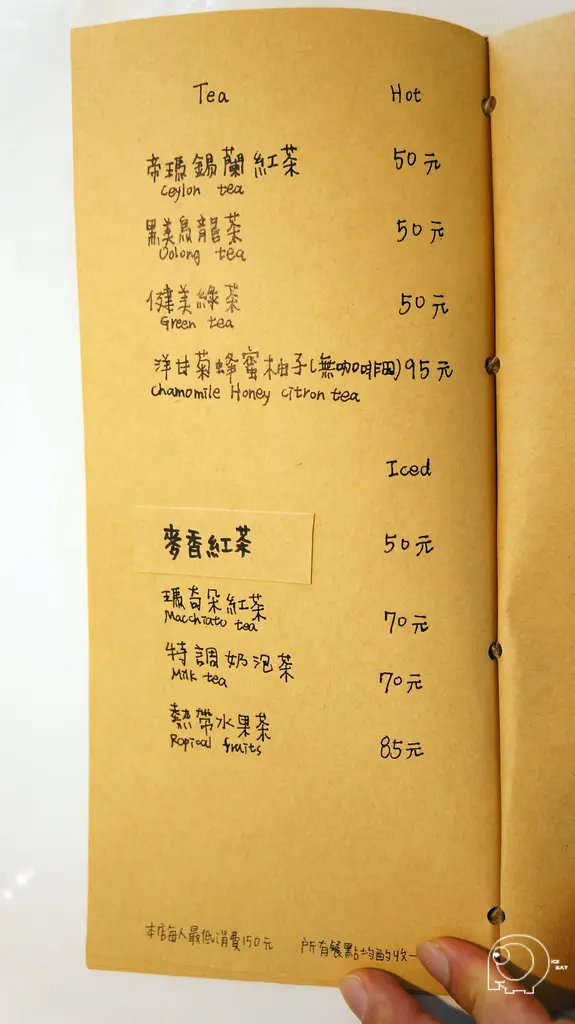 Tea Hot
帝瑪錫蘭紅茶 50元
Ceylon tea
黑美烏龍茶 50元
Oolong tea
健美綠茶 50元
Green tea
洋甘菊蜂蜜柚子(無咖啡因) 95元
Chamomile Honey citron tea
Iced
麥香紅茶 50元
瑪奇朵紅茶 70元
Macchiato tea
特調奶泡茶 70元
Milk tea
熱帶水果茶 85元
Ropical fruits
本店每人最低消費150元 所有餐點均酌收一
ICE EAT